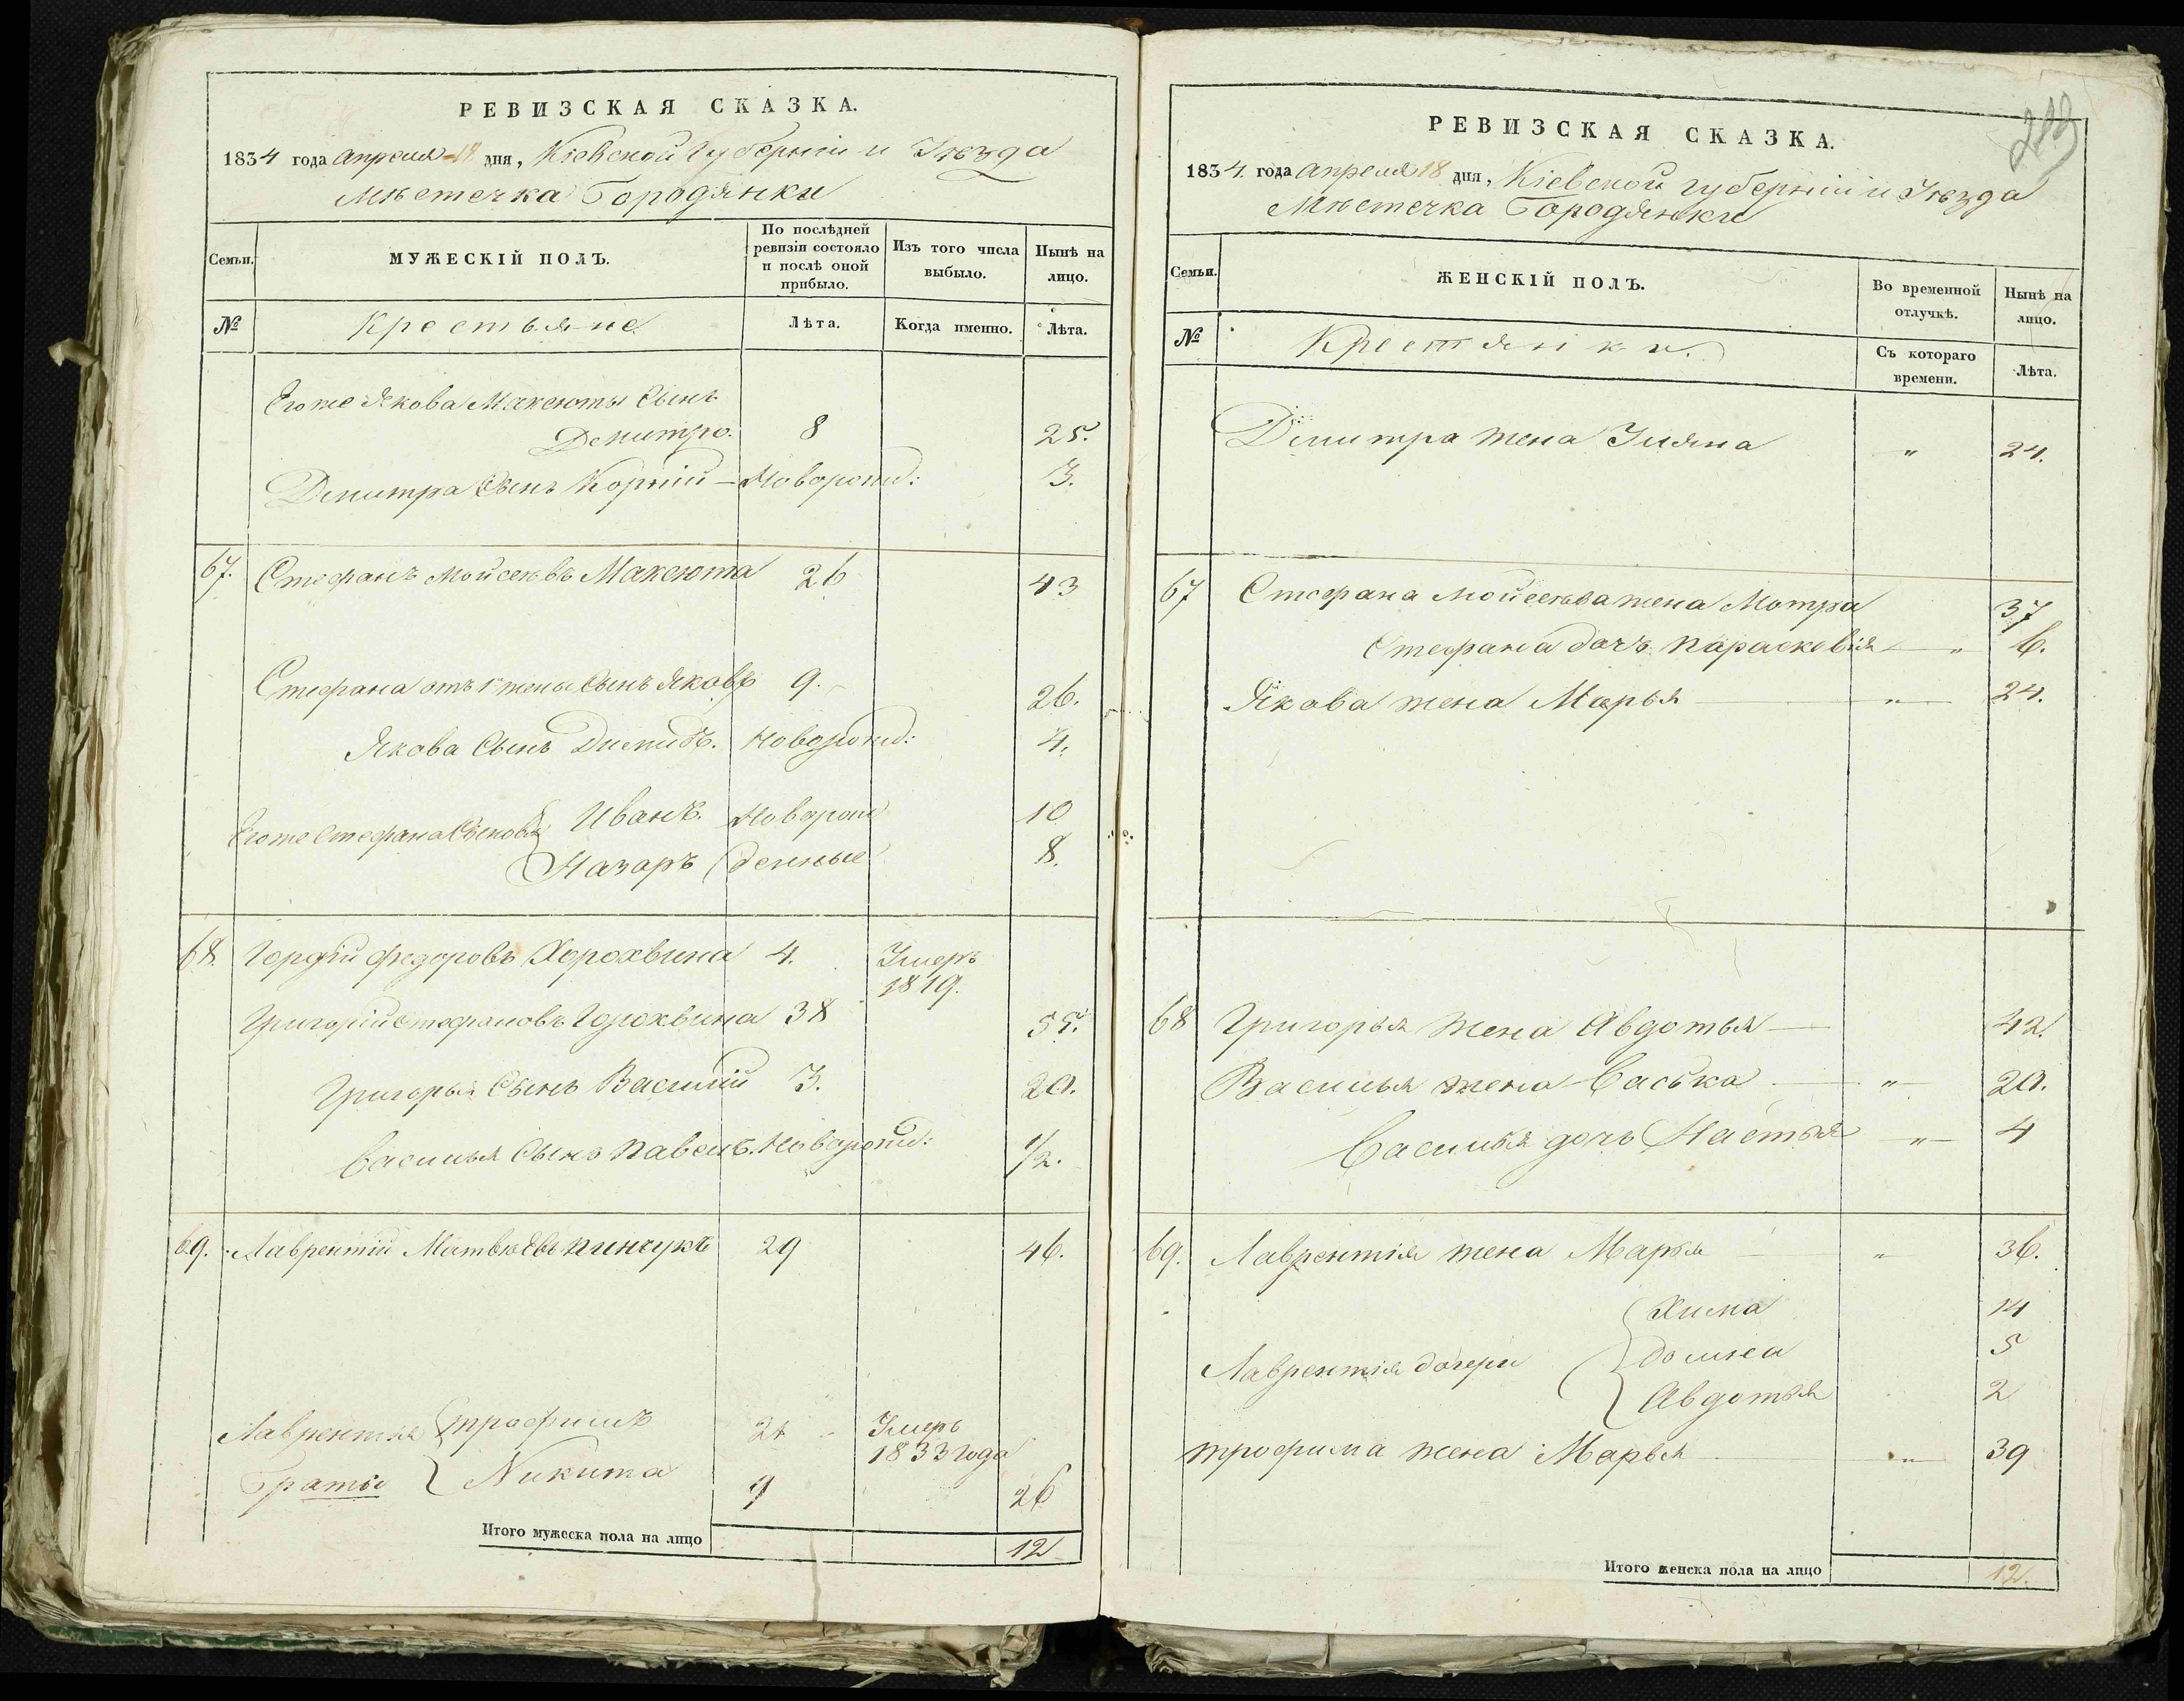 РЕВИЗСКАЯ СКАЗКА.
1834 года апреля 18 дня, Кіевской Губерніи и Уѣзда
Мѣстечка Городянки
Семьи. МУЖЕСКІЙ ПОЛЪ. По послѣдней ревизіи состояло и послѣ оной прибыло. Изъ того числа выбыло. Нынѣ на лицо.
№ Крестьяне Лѣта. Когда именно. Лѣта.
Егоже Якова Максюты Сынъ
Демитро. 8 25.
Демитра Сынъ Корній – Коворожд: 3.
67. Стефанъ Мойсеѣвъ Максюта 26 43
Стефана отъ 1 жены Сынъ Яковъ 9. 26.
Якова Сынъ Димидъ. Новорожд: 4.
Егоже Стефана Сыновья Иванъ. Новорож 10
Назаръ денные 8.
68. Гордій Федоровъ Хорохвина 4. Умеръ
1819.
Григорій Стефановъ Горохвина 38 55.
Григорья Сынъ Василій 3. 20.
Василья Сынъ Павелъ. Новорожд: 1/2.
69. Лаврентій Матвѣевъ Пинчукъ 29 46.
Лаврентія трофимъ 24 Умеръ
1833 года
Браты Никита 9 26
Итого мужеска пола на лицо 12
РЕВИЗСКАЯ СКАЗКА.
1834. года апреля 18 дня, Кіевской губерніи и Уѣзда
Мѣстечка Городянки
Семьи. ЖЕНСКІЙ ПОЛЪ. Во временной отлучкѣ. Нынѣ на лицо.
№ Крестянки. Съ котораго времени. Лѣта.
Демитра жена Уляна " 24.
67 Стефана Мойсеѣва жена Мотря 37
Стефана дочъ Параскевія " 6.
Якова жена Марья " 24.
68 Григорья жена Авдотья 42.
Василья жена Васька " 20.
Василья дочь Настья " 4
69. Лаврентія жена Марья " 36.
Хима 14
Лаврентія дочери Домна 5
Авдотья 2
трофима жена Марья " 39
Итого женска пола на лицо 12.